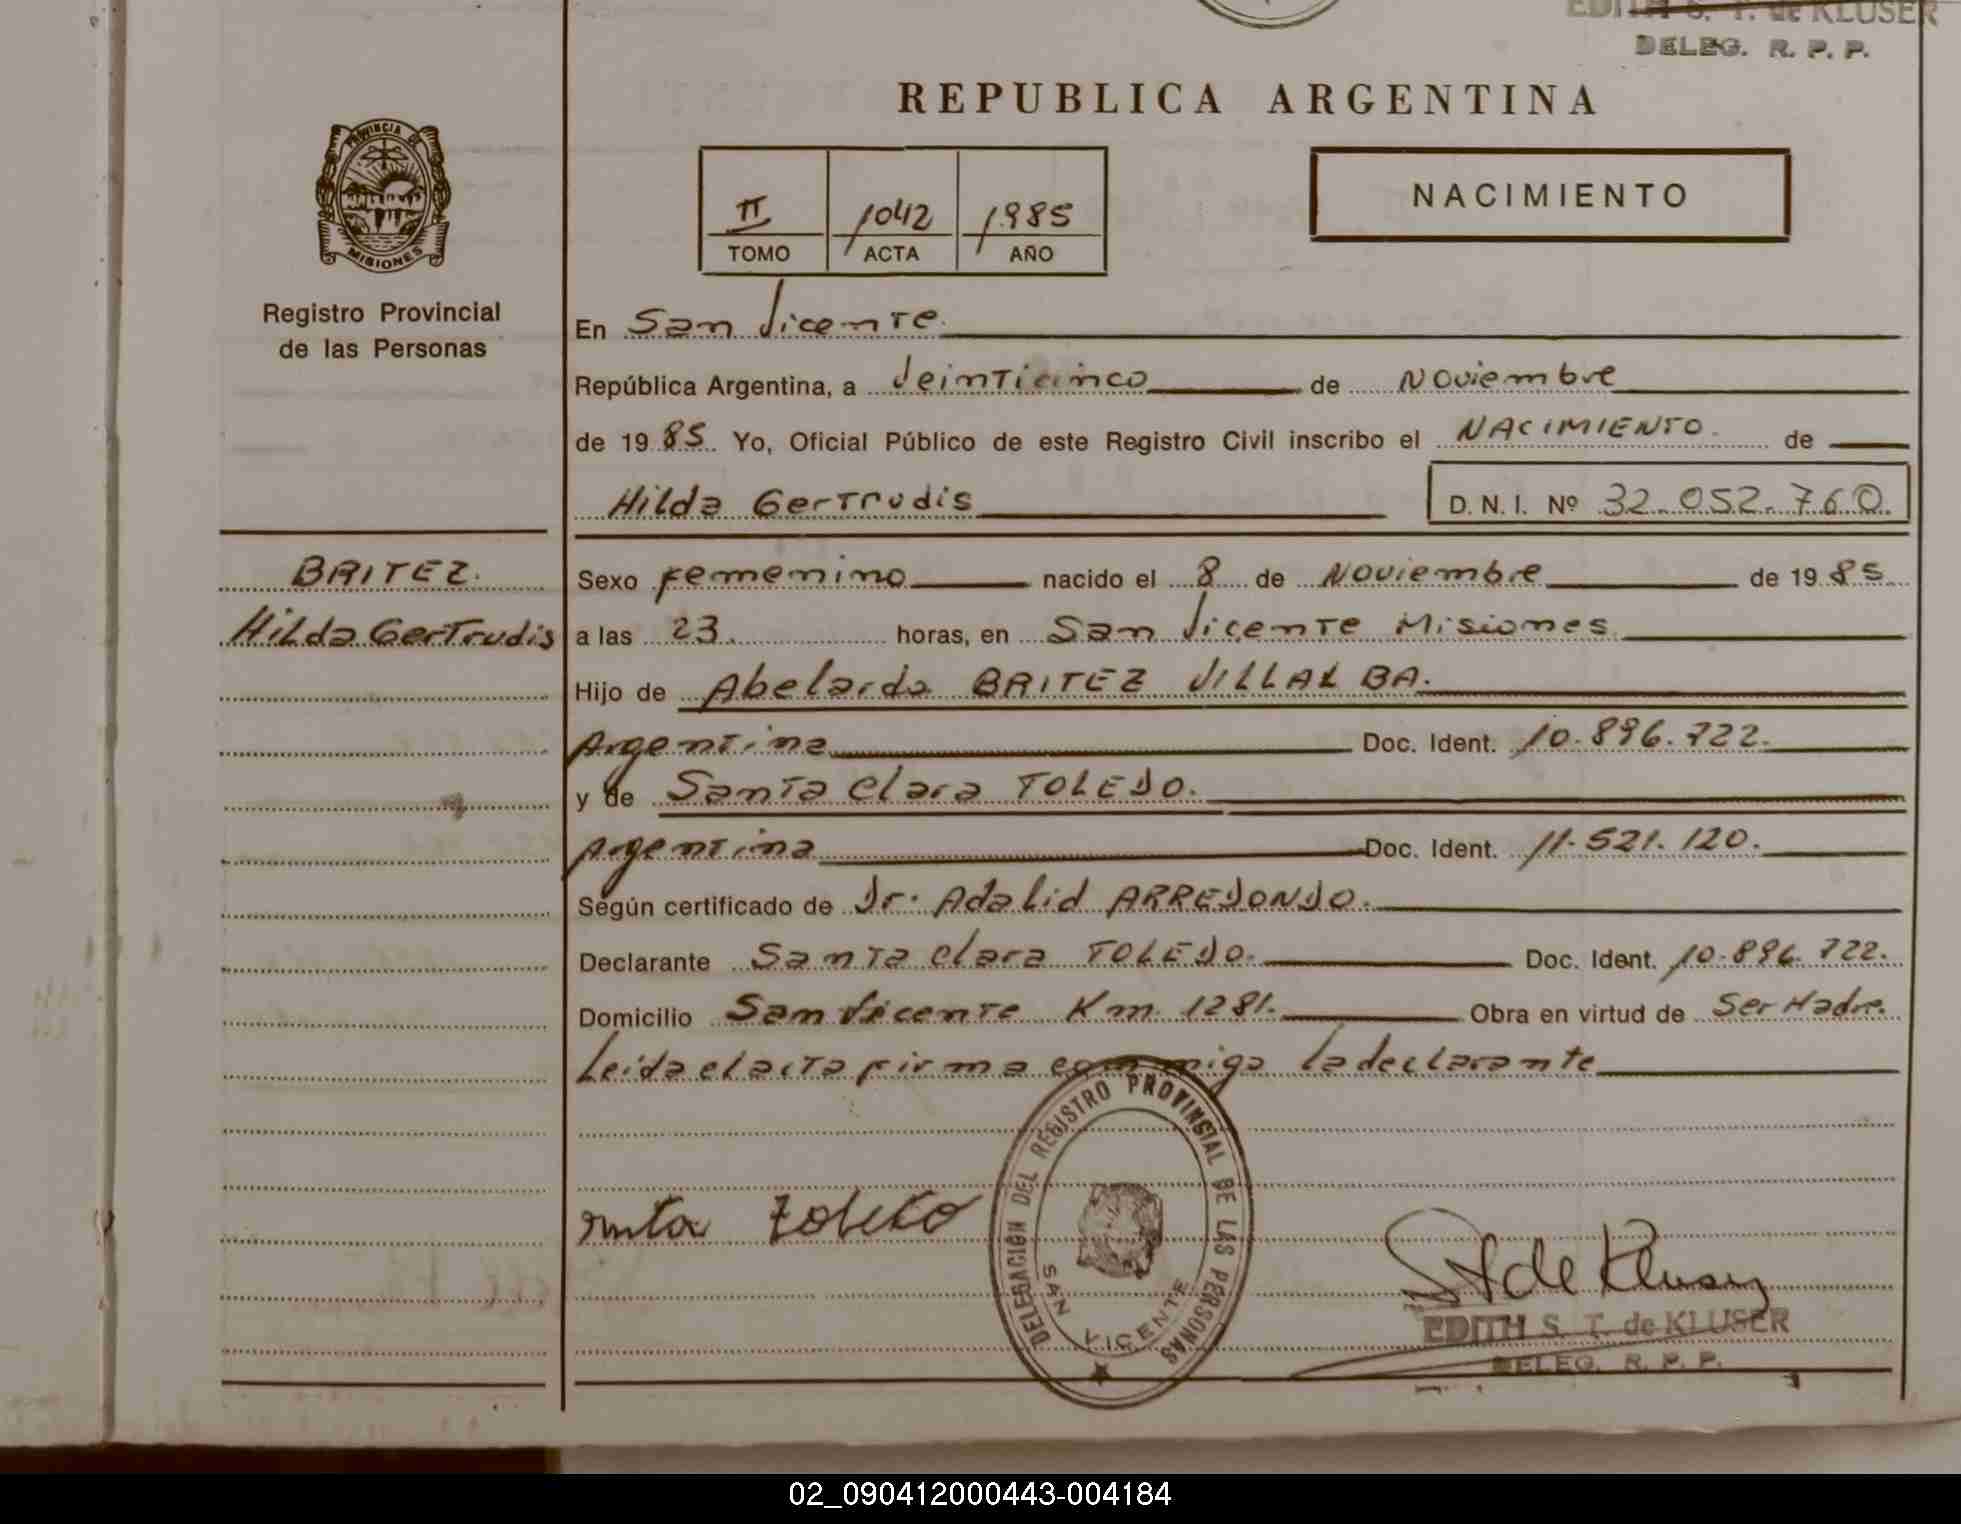 EDITH S. T. de KLUSER
DELEG. R. P. P.
REPUBLICA ARGENTINA
PROVINCIA DE
MISIONES
II 1042 1985
TOMO ACTA AÑO
NACIMIENTO
Registro Provincial
de las Personas
En San Vicente.
República Argentina, a Veinticinco de Noviembre
de 1985 Yo, Oficial Público de este Registro Civil inscribo el NACIMIENTO. de
Hilda Gertrudis D. N. I. Nº 32.052.760.
BRITEZ.
Hilda Gertrudis
Sexo Femenino nacido el 8 de Noviembre de 1985
a las 23. horas, en San Vicente Misiones.
Hijo de Abelardo BRITEZ VILLALBA.
Argentina Doc. Ident. 10.896.722.
y de Santa Clara TOLEDO.
Argentina Doc. Ident. 11.521.120.
Según certificado de Dr. Adalid ARREDONDO.
Declarante Santa Clara TOLEDO. Doc. Ident. 10.896.722.
Domicilio San Vicente Km 1281. Obra en virtud de Ser Madre.
Leida el acta firma conmigo la declarante
DELEGACIÓN DEL REGISTRO PROVINSIAL DE LAS PERSONAS
SAN VICENTE
Toledo
S T de Kluser
EDITH S. T. de KLUSER
DELEG. R. P. P.
02_090412000443-004184